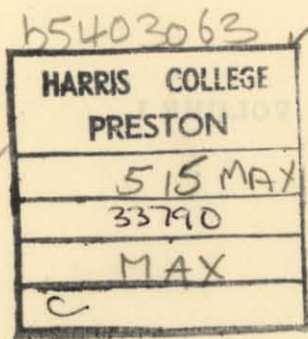 b5403063
HARRIS COLLEGE
PRESTON
515 MAX
33790
MAX
C